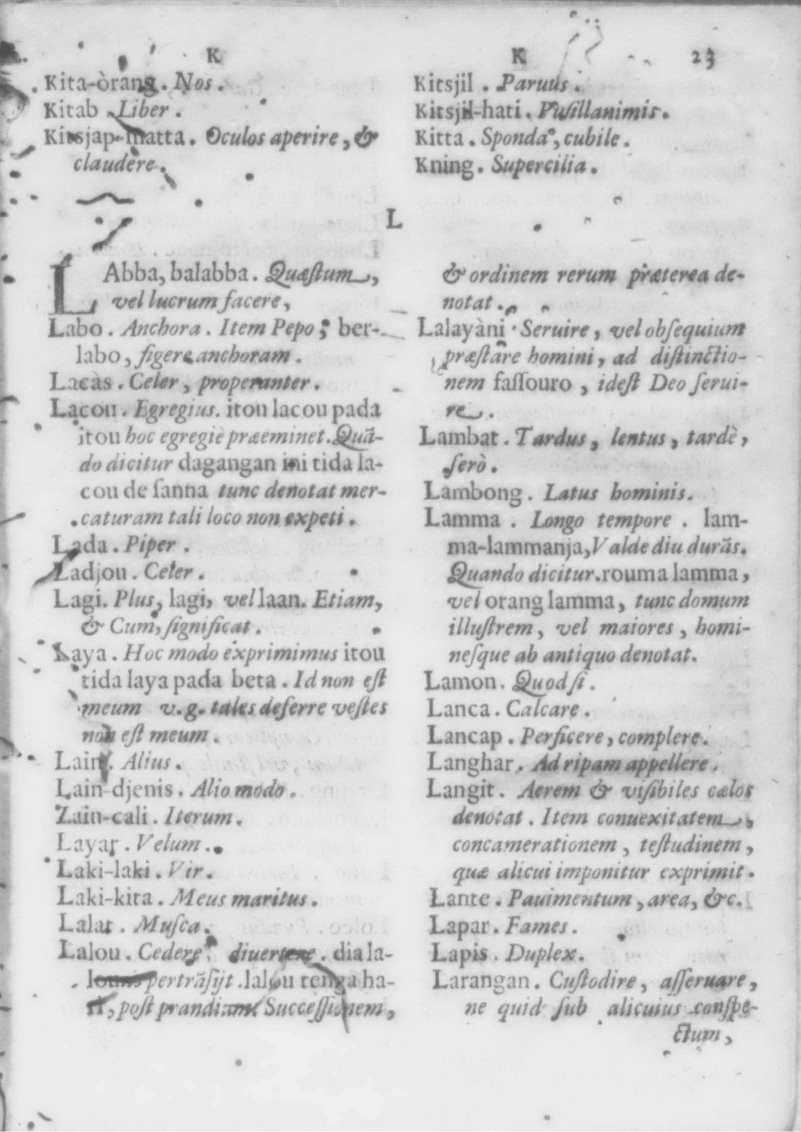 K
K
23
Kita-òrang. Nos.
Kitab. Liber.
Kitsjap-matta. Oculos aperire, &
claudere.
Kitsjil. Paruus.
Kitsjil-hati. Pusillanimis.
Kitta. Sponda, cubile.
Kning. Supercilia.
L
LAbba, balabba. Quæstum,
vel lucrum facere,
Labo. Anchora. Item Pepo; ber-
labo, figere anchoram.
Lacàs. Celer, properanter.
Lacou. Egregius. itou lacou pada
itou hoc egregiè præeminet. Quã-
do dicitur dagangan ini tida la-
cou de sanna tunc denotat mer-
caturam tali loco non expeti.
Lada. Piper.
Ladjou. Celer.
Lagi. Plus, lagi, vel laan. Etiam,
& Cum, significat.
Laya. Hoc modo exprimimus itou
tida laya pada beta. Id non est
meum v.g. tales deferre vestes
non est meum.
Lain. Alius.
Lain-djenis. Alio modo.
Lain-cali. Iterum.
Layar. Velum.
Laki-laki. Vir.
Laki-kita. Meus maritus.
Lalat. Musca.
Lalou. Cedere, diuertere. dia la-
pertrãsijt. lalou tenga ha-
ri, post prandium. Successionem,
& ordinem rerum præterea de-
notat.
Lalayàni. Seruire, vel obsequium
præstare homini, ad distinctio-
nem fassouro, idest Deo serui-
re.
Lambat. Tardus, lentus, tardè,
serò.
Lambong. Latus hominis.
Lamma. Longo tempore. lam-
ma-lammanja, Valde diu durãs.
Quando dicitur. rouma lamma,
vel orang lamma, tunc domum
illustrem, vel maiores, homi-
nesque ab antiquo denotat.
Lamon. Quod si.
Lanca. Calcare.
Lancap. Perficere, complere.
Langhar. Ad ripam appellere.
Langit. Aerem & visibiles cælos
denotat. Item conuexitatem,
concamerationem, testudinem,
quæ alicui imponitur exprimit.
Lante. Pauimentum, area, &c.
Lapar. Fames.
Lapis. Duplex.
Larangan. Custodire, asseruare,
ne quid sub alicuius conspe-
ctum,